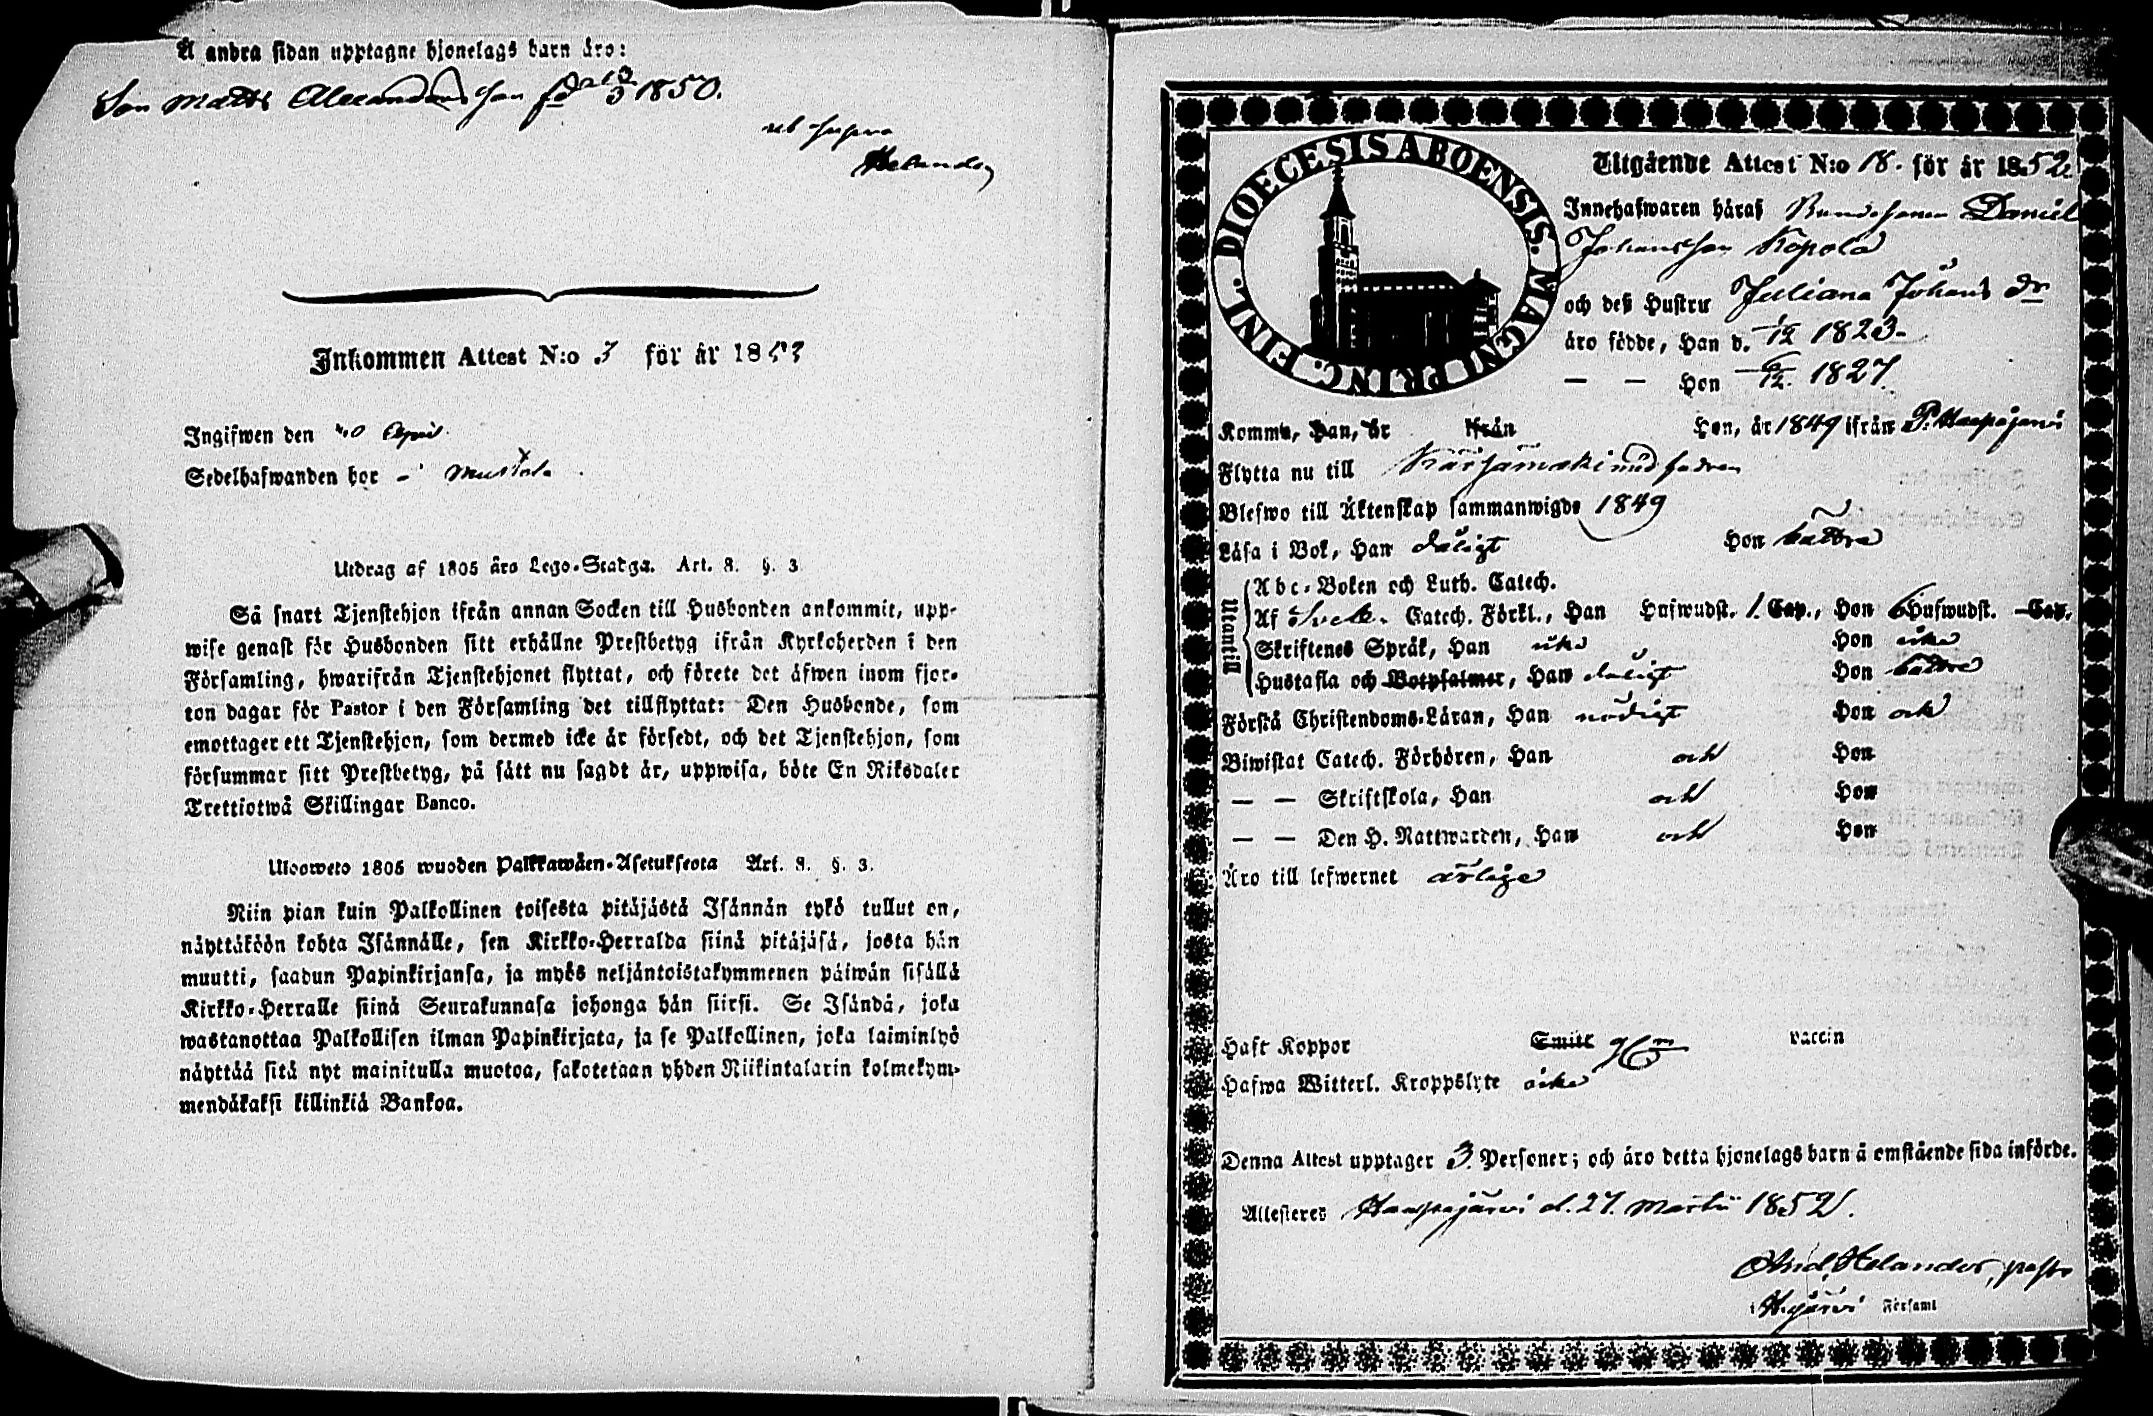 Å andra sidan upptagne hjonelags barn äro:
Son Matts Alexandersson född 1850.
ut supra
Helander
Inkommen Attest N:o 3 för år 1853
Ingifwen den April
Sedelhafwanden hor Mustola
Utdrag af 1805 års Lego-Stadga. Art. 8. §. 3
Så snart Tjenstehjon ifrån annan Socken till Husbonden ankommit, upp-
wise genast för Husbonden sitt erhållne Prestbetyg ifrån Kyrkoherden i den
Församling, hwarifrån Tjenstehjonet flyttat, och förete det äfwen inom fjor-
ton dagar för Pastor i den Församling det tillflyttat: Den Husbonde, som
emottager ett Tjenstehjon, som dermed icke är försedt, och det Tjenstehjon, som
försummar sitt Prestbetyg, på sätt nu sagdt är, uppwisa, böte En Riksdaler
Trettiotwå Skillingar Banco.
Ulosweto 1805 wuoden Palkkawäen-Asetuksesta Art. 8. §. 3.
Niin pian kuin Palkollinen toisesta pitäjästä Isännän tykö tullut on,
näyttäköön kohta Isännälle, sen Kirkko-Herralda siinä pitäjäsä, josta hän
muutti, saadun Papinkirjansa, ja myös neljäntoistakymmenen päiwän sisällä
Kirkko-Herralle siinä Seurakunnasa johonga hän siirsi. Se Isändä, joka
wastanottaa Palkollisen ilman Papinkirjata, ja se Palkollinen, joka laiminlyö
näyttää sitä nyt mainitulla muotoa, sakotetaan yhden Riikintalarin kolmekym-
mendäkaksi killinkiä Bankoa.
DIOECESIS ABOENSIS. MAGNI PRINC. FINL.
Utgående Attest N:o 18. för år 1852.
Innehafwaren häraf Bondesonen Daniel
Johansson Kopola
och dess Hustru Juliana Johans dr
äro födde, Han d. 1/12 1823
— — Hon 6/12. 1827.
Komme, Han, år ifrån Hon, år 1849 ifrån P. Haapajärvi
Flytta nu till Kärsämäki med fadren
Blefwo till Äktenskap sammanwigde 1849
Läsa i Bok, Han dåligt Hon bättre
Utantill
Abc-Boken och Luth. Catech.
Af Sveb. Catech. Förkl., Han Hufwudst. 1. Cap., Hon 6 Hufwudst. Cap.
Skriftenes Språk, Han icke Hon icke
Hustafla och Botpsalmer, Han dåligt Hon bättre
Förstå Christendoms-Läran, Han nödigt Hon och
Biwistat Catech. Förhören, Han och Hon
— — Skriftskola, Han och Hon
— — Den H. Nattwarden, Han och Hon
Äro till lefwernet ärlige
Haft Koppor Smitt vaccin
Hafwa Witterl. Kroppslyte icke
Denna Attest upptager 3. Personer; och äro detta hjonelags barn å omstående sida införde.
Attesteres Haapajärvi d. 27. Martii 1852.
And. Helander, past
i H.järvi Församl